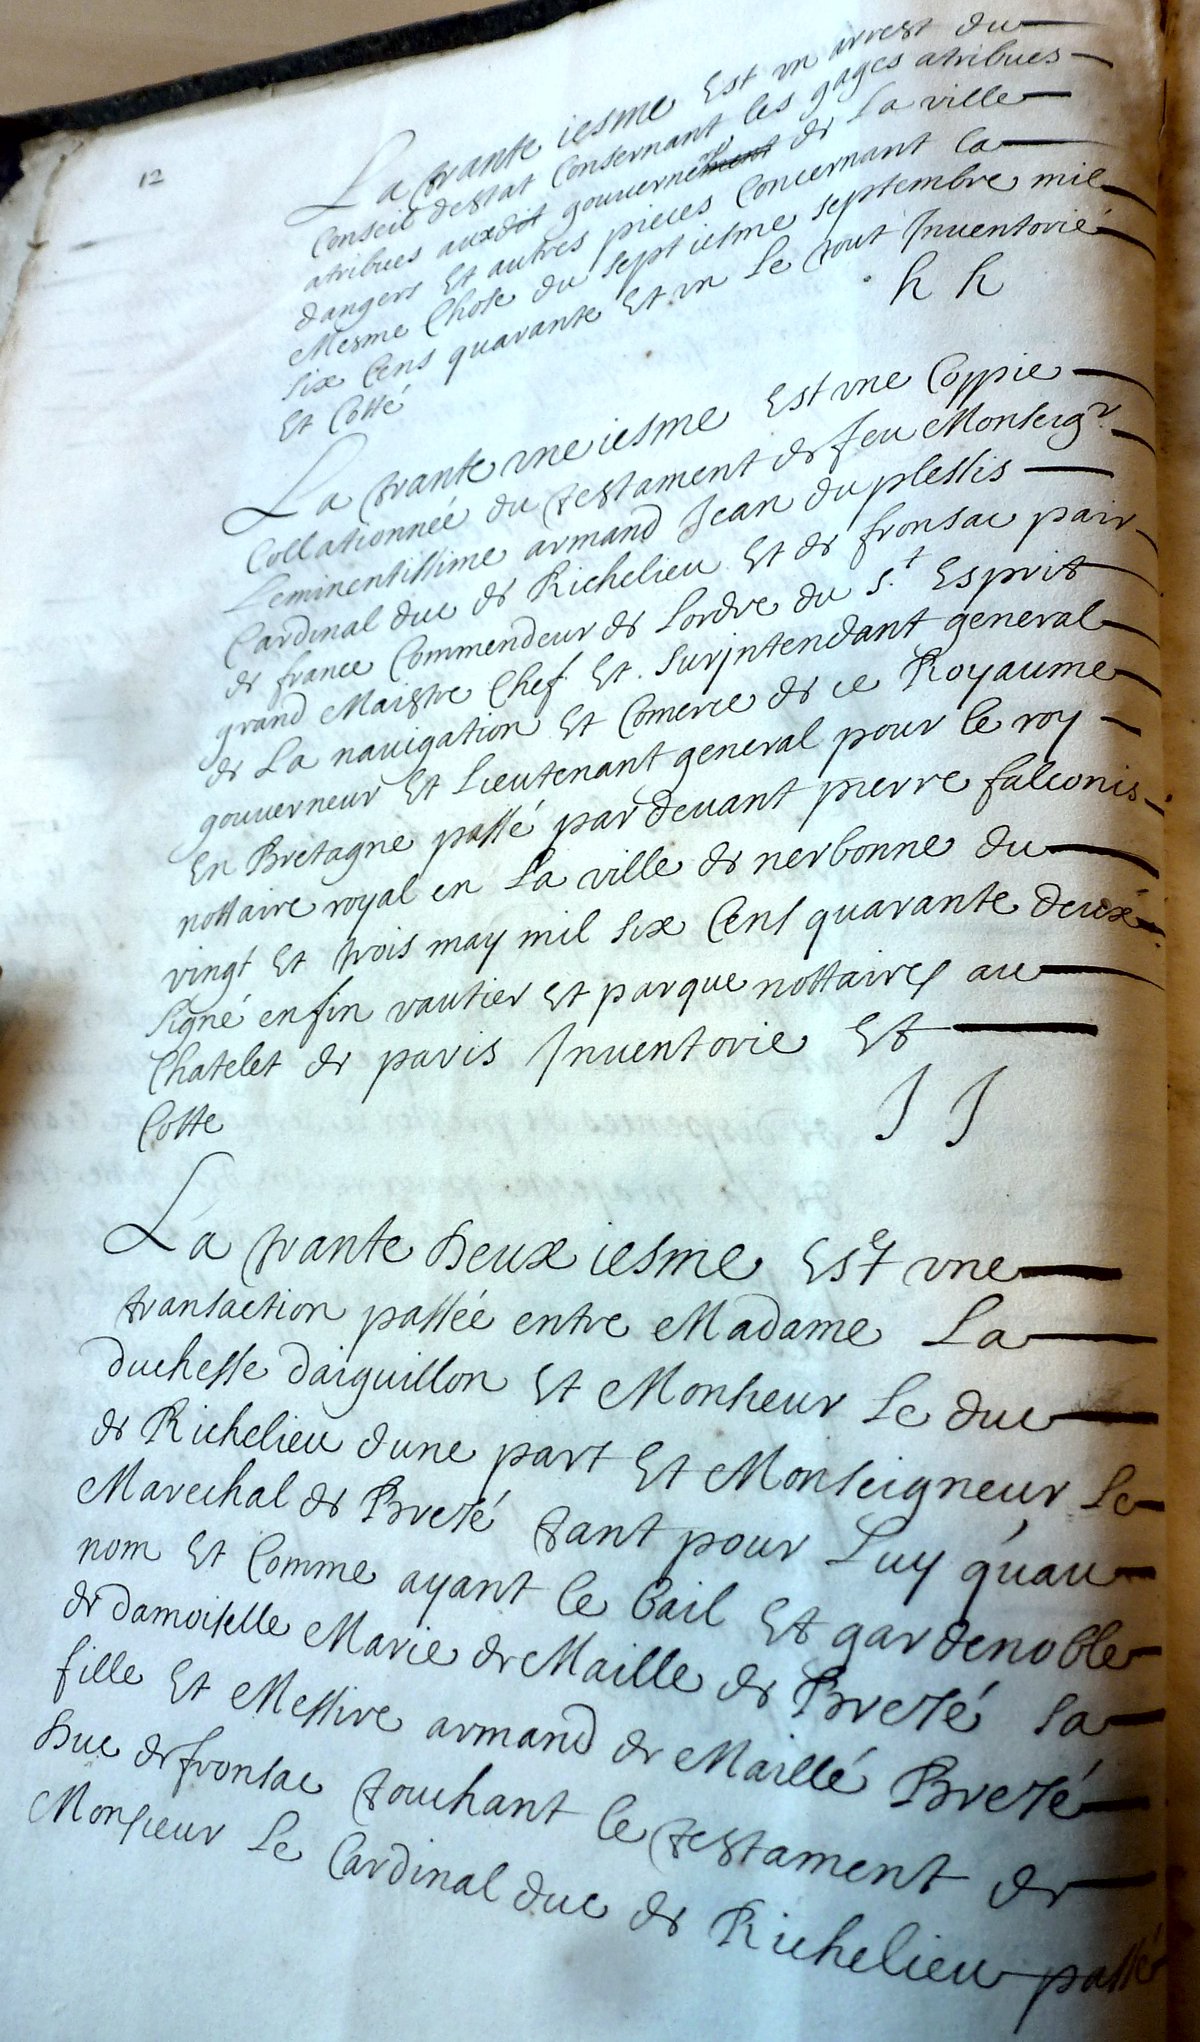 12
La trante iesme Est vn arrest du
Conseil destat Consernant les gages atribues
atribues auxdit gouvernement de La ville
dangers Et autres pieces Concernant la
Mesme Chose du sept iesme septembre mil
six Cens quarante Et vn Le tout Inventorié
Et Cotté h h
La trante vne iesme Est vne Coppie
Collationnée du testament de feu Monseigr
Leminentissime armand Jean du plessis
Cardinal duc de Richelieu Et de fronsac pair
de france Commendeur de Lordre du St Esprit
grand Maistre Chef Et Surjntendant general
de La nauigation Et Comerce de ce Royaume
gouuerneur Et Lieutenant general pour le roy
En Bretagne passé par deuant pierre falconis
nottaire royal en La ville de nerbonne du
vingt Et trois may mil six Cens quarante deux
signé enfin vautier Et parque nottaires au
Chatelet de paris Inuentorie Et
Cotte J J
La trante deux iesme Est vne
transaction passée entre Madame La
duchesse daiguillon Et Monsieur Le duc
de Richelieu dune part Et Monseigneur Le
Marechal de Brezé tant pour Luy quau
nom Et Comme ayant le bail Et garde noble
de damoiselle Marie de Maille de Brezé sa
fille Et Messire armand de Maillé Brezé
duc de fronsac touchant le testament de
Monsieur Le Cardinal duc de Richelieu passé